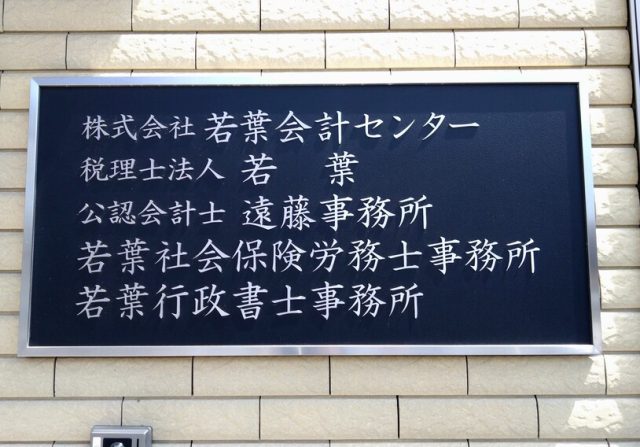 株式会社 若葉会計センター
税理士法人 若 葉
公認会計士 遠藤事務所
若葉社会保険労務士事務所
若葉行政書士事務所